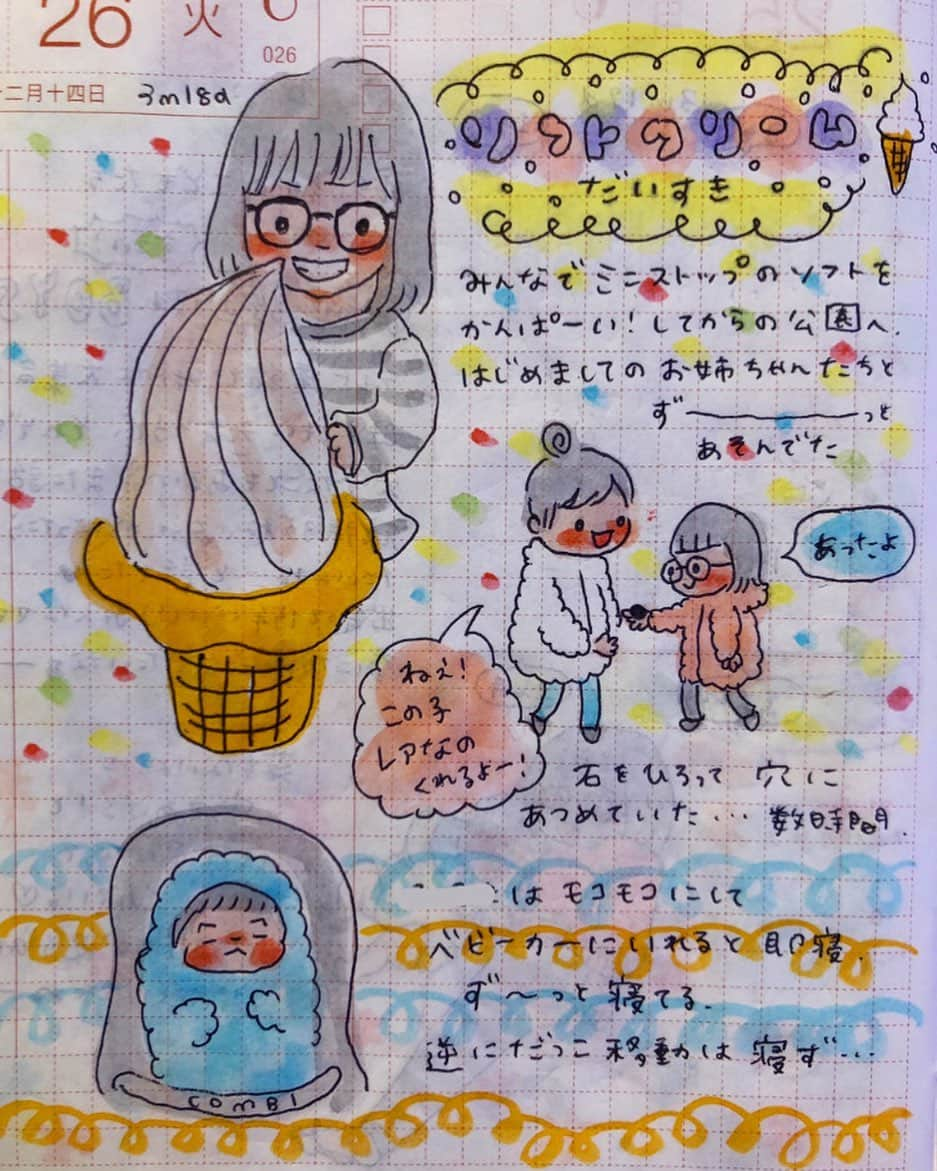 26 火
026
十二月十四日 3m18d
ソフトクリーム
だいすき
みんなでミニストップのソフトを
かんぱーい!してからの公園へ.
はじめましてのお姉ちゃんたちと
ず―――っと
あそんでた
あったよ
ねえ!
この子
レアなの
くれるよー!
石をひろって 穴に
あつめていた… 数時間.
はモコモコにして
ベビーカーにいれると即寝.
ず〜っと寝てる.
逆にだっこ移動は寝ず…
COMBI